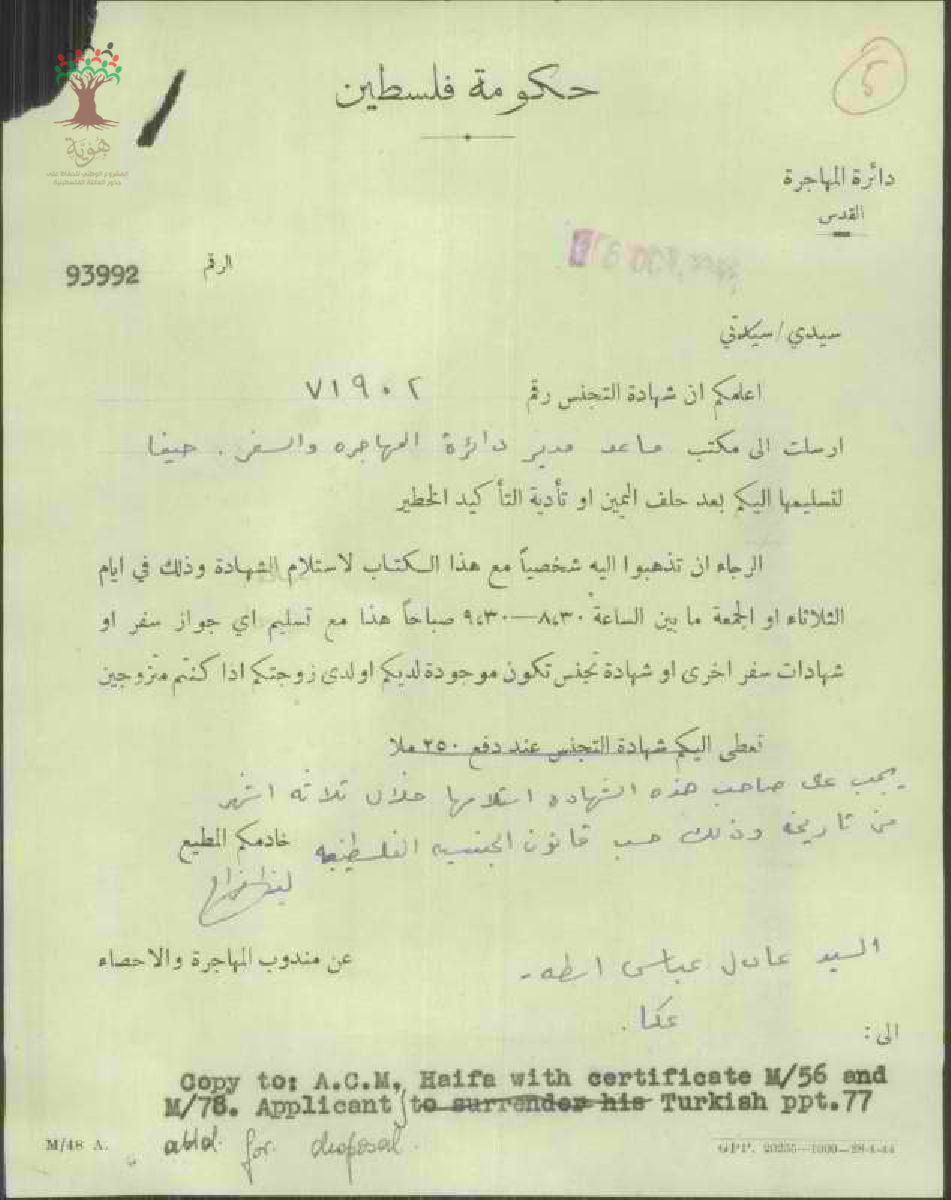 5
هوية
المشروع الوطني للحفاظ على
جذور العائلة الفلسطينية
حكومة فلسطين
دائرة المهاجرة
القدس
6 OCT.
الرقم 93992
سيدي/سيدتي
اعلمكم ان شهادة التجنس رقم ٧١٩٠٢
ارسلت الى مكتب مساعد مدير دائرة المهاجره والسفر . حيفا
لتسليمها اليكم بعد حلف اليمين او تأدية التأكيد الخطير
الرجاء ان تذهبوا اليه شخصياً مع هذا الكتاب لاستلام الشهادة وذلك في ايام
الثلاثاء او الجمعة ما بين الساعة ٨،٣٠—٩،٣٠ صباحاً هذا مع تسليم اي جواز سفر او
شهادات سفر اخرى او شهادة تجنس تكون موجودة لديكم او لدى زوجتكم اذا كنتم متزوجين
تعطى اليكم شهادة التجنس عند دفع ٢٥٠ ملا
يجب على صاحب هذه الشهاده استلامها خلال ثلاثه اشهر
من تاريخه وذلك حسب قانون الجنسيه الفلسطينيه
خادمكم المطيع
عن مندوب المهاجرة والاحصاء
السيد عادل عباس اسطه
عكا .
الى :
Copy to: A.C.M. Haifa with certificate M/56 and
M/78. Applicant to surrender his Turkish ppt.77
for disposal.
M/48 A.
GPP. 20255—1000—28-4-44